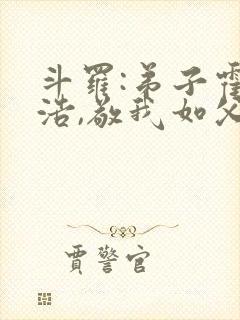 斗羅:弟子霍
浩,敬我如父
賈警官